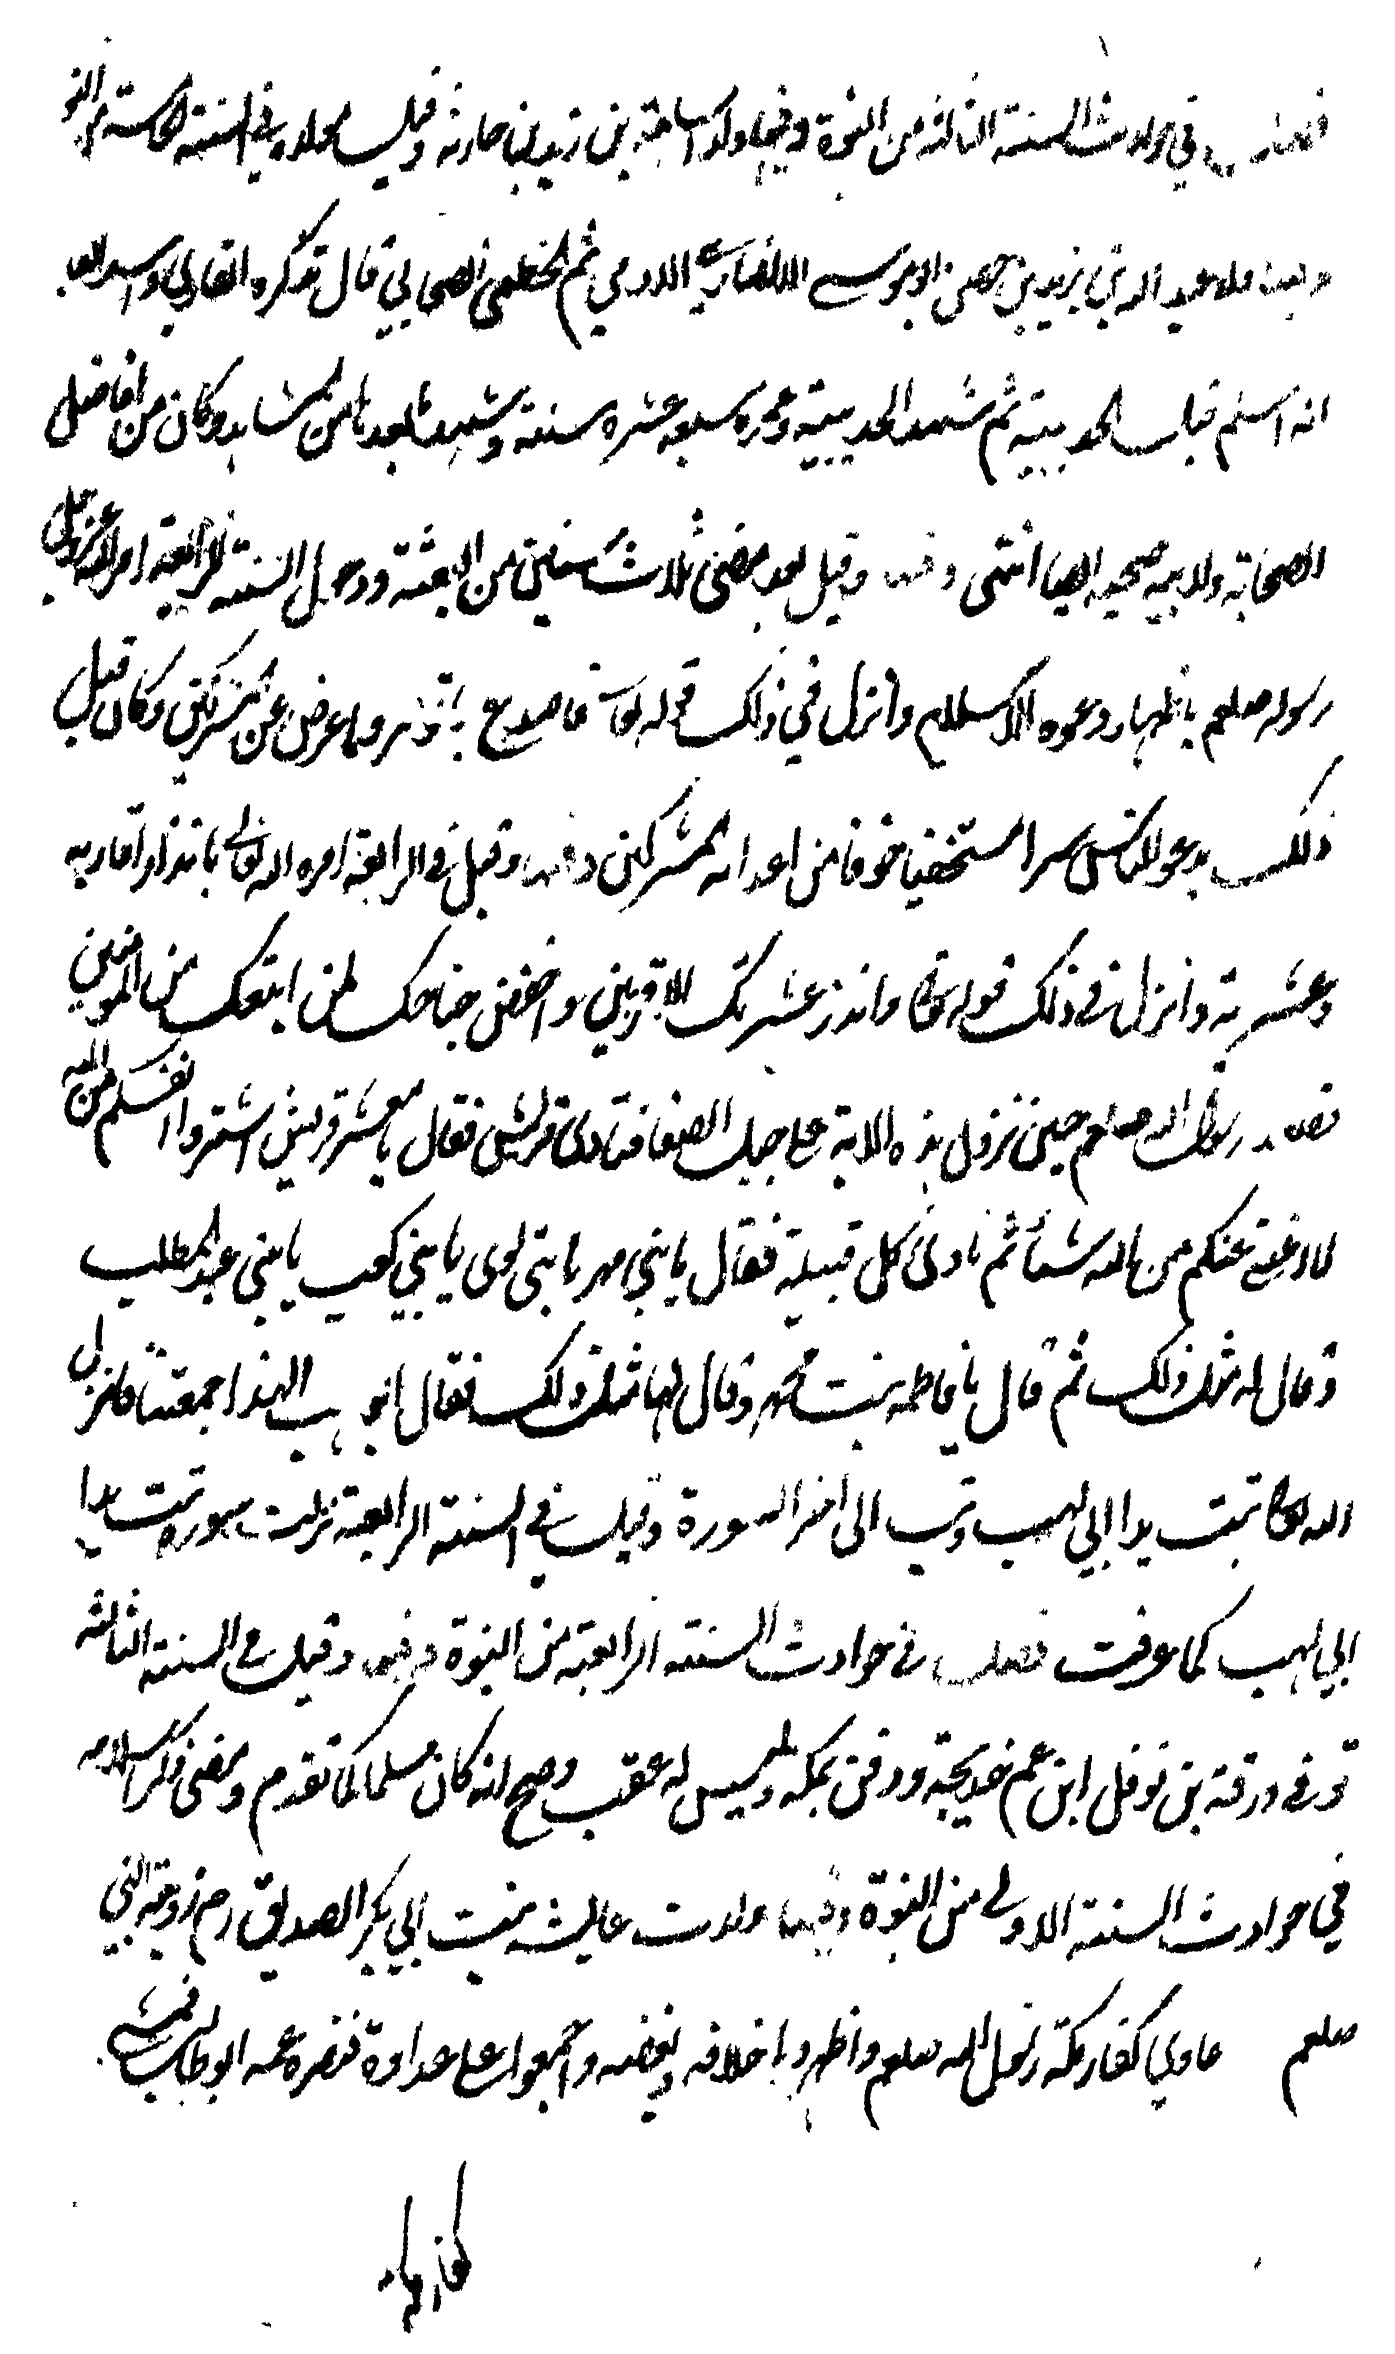 فصل في حوادث السنة الثالثة من النبوة وفيها ولد اسامة بن زيد بن حارثة وقيل ميلاده في السنة الخامسة من النبوة
وفيها ولد عبد الله بن يزيد بن حصن ابو موسى الانصاري الاوسي ثم الخطمي الصحابي قال
انه اسلم قبل الحديبية ثم شهد الحديبية وعمره سبعة عشره سنة وشهد ما بعدها من المشاهد وكان من افاضل
الصحابة ولابيه صحبة ايضا انتهى وفيها وقيل بعد مضى ثلاث سنين من البعثة ودخول السنة الرابعة امر الله عز وجل
رسوله صلعم باظهار دعوه الاسلام وانزل في ذلك قوله تعا فاصدع بما تؤمر واعرض عن المشركين وكان قبل
ذلك يدعو الناس سرا مستخفيا خوفا من اعدائه المشركين وفيها وقيل في الرابعة امره الله تعالى بانذار اقاربه
وعشيرته وانزل في ذلك قوله تعا وانذر عشيرتك الاقربين واخفض جناحك لمن اتبعك من المومنين
فصعد رسول الله صلعم حين نزول هذه الاية على جبل الصفا فنادى قريش فقال يا معشر قريش اشتروا انفسكم من الله
لا اغني عنكم من الله شيئا ثم نادى كل قبيلة فقال يا بني فهر يا بني لوى يا بني كعب يا بني عبد المطلب
وقال له مثل ذلك ثم قال يا فاطمه بنت محمد وقال لها مثل ذلك فقال ابو لهب الهذا جمعتنا فانزل
الله تعا تبت يدا ابي لهب وتب الى اخر السورة وقيل في السنة الرابعة نزلت سورة تبت يدا
ابي لهب كما عرفت فصل في حوادث السنة الرابعة من النبوة وفيها وقيل في السنة الثالثة
توفى ورقة بن نوفل ابن عم خديجة ودفن بمكه وليس له عقب وصح انه كان مسلما كما تقدم ومضى ذكر اسلامه
في حوادث السنة الاولى من النبوة وفيها ولدت عايشه بنت ابي بكر الصديق رض زوجة النبي
صلعم عادى كفار مكة رسول الله صلعم واظهروا خلافه وبغضه واجمعوا على عداوة فنصره عمه ابو طالب فمشى
كفار